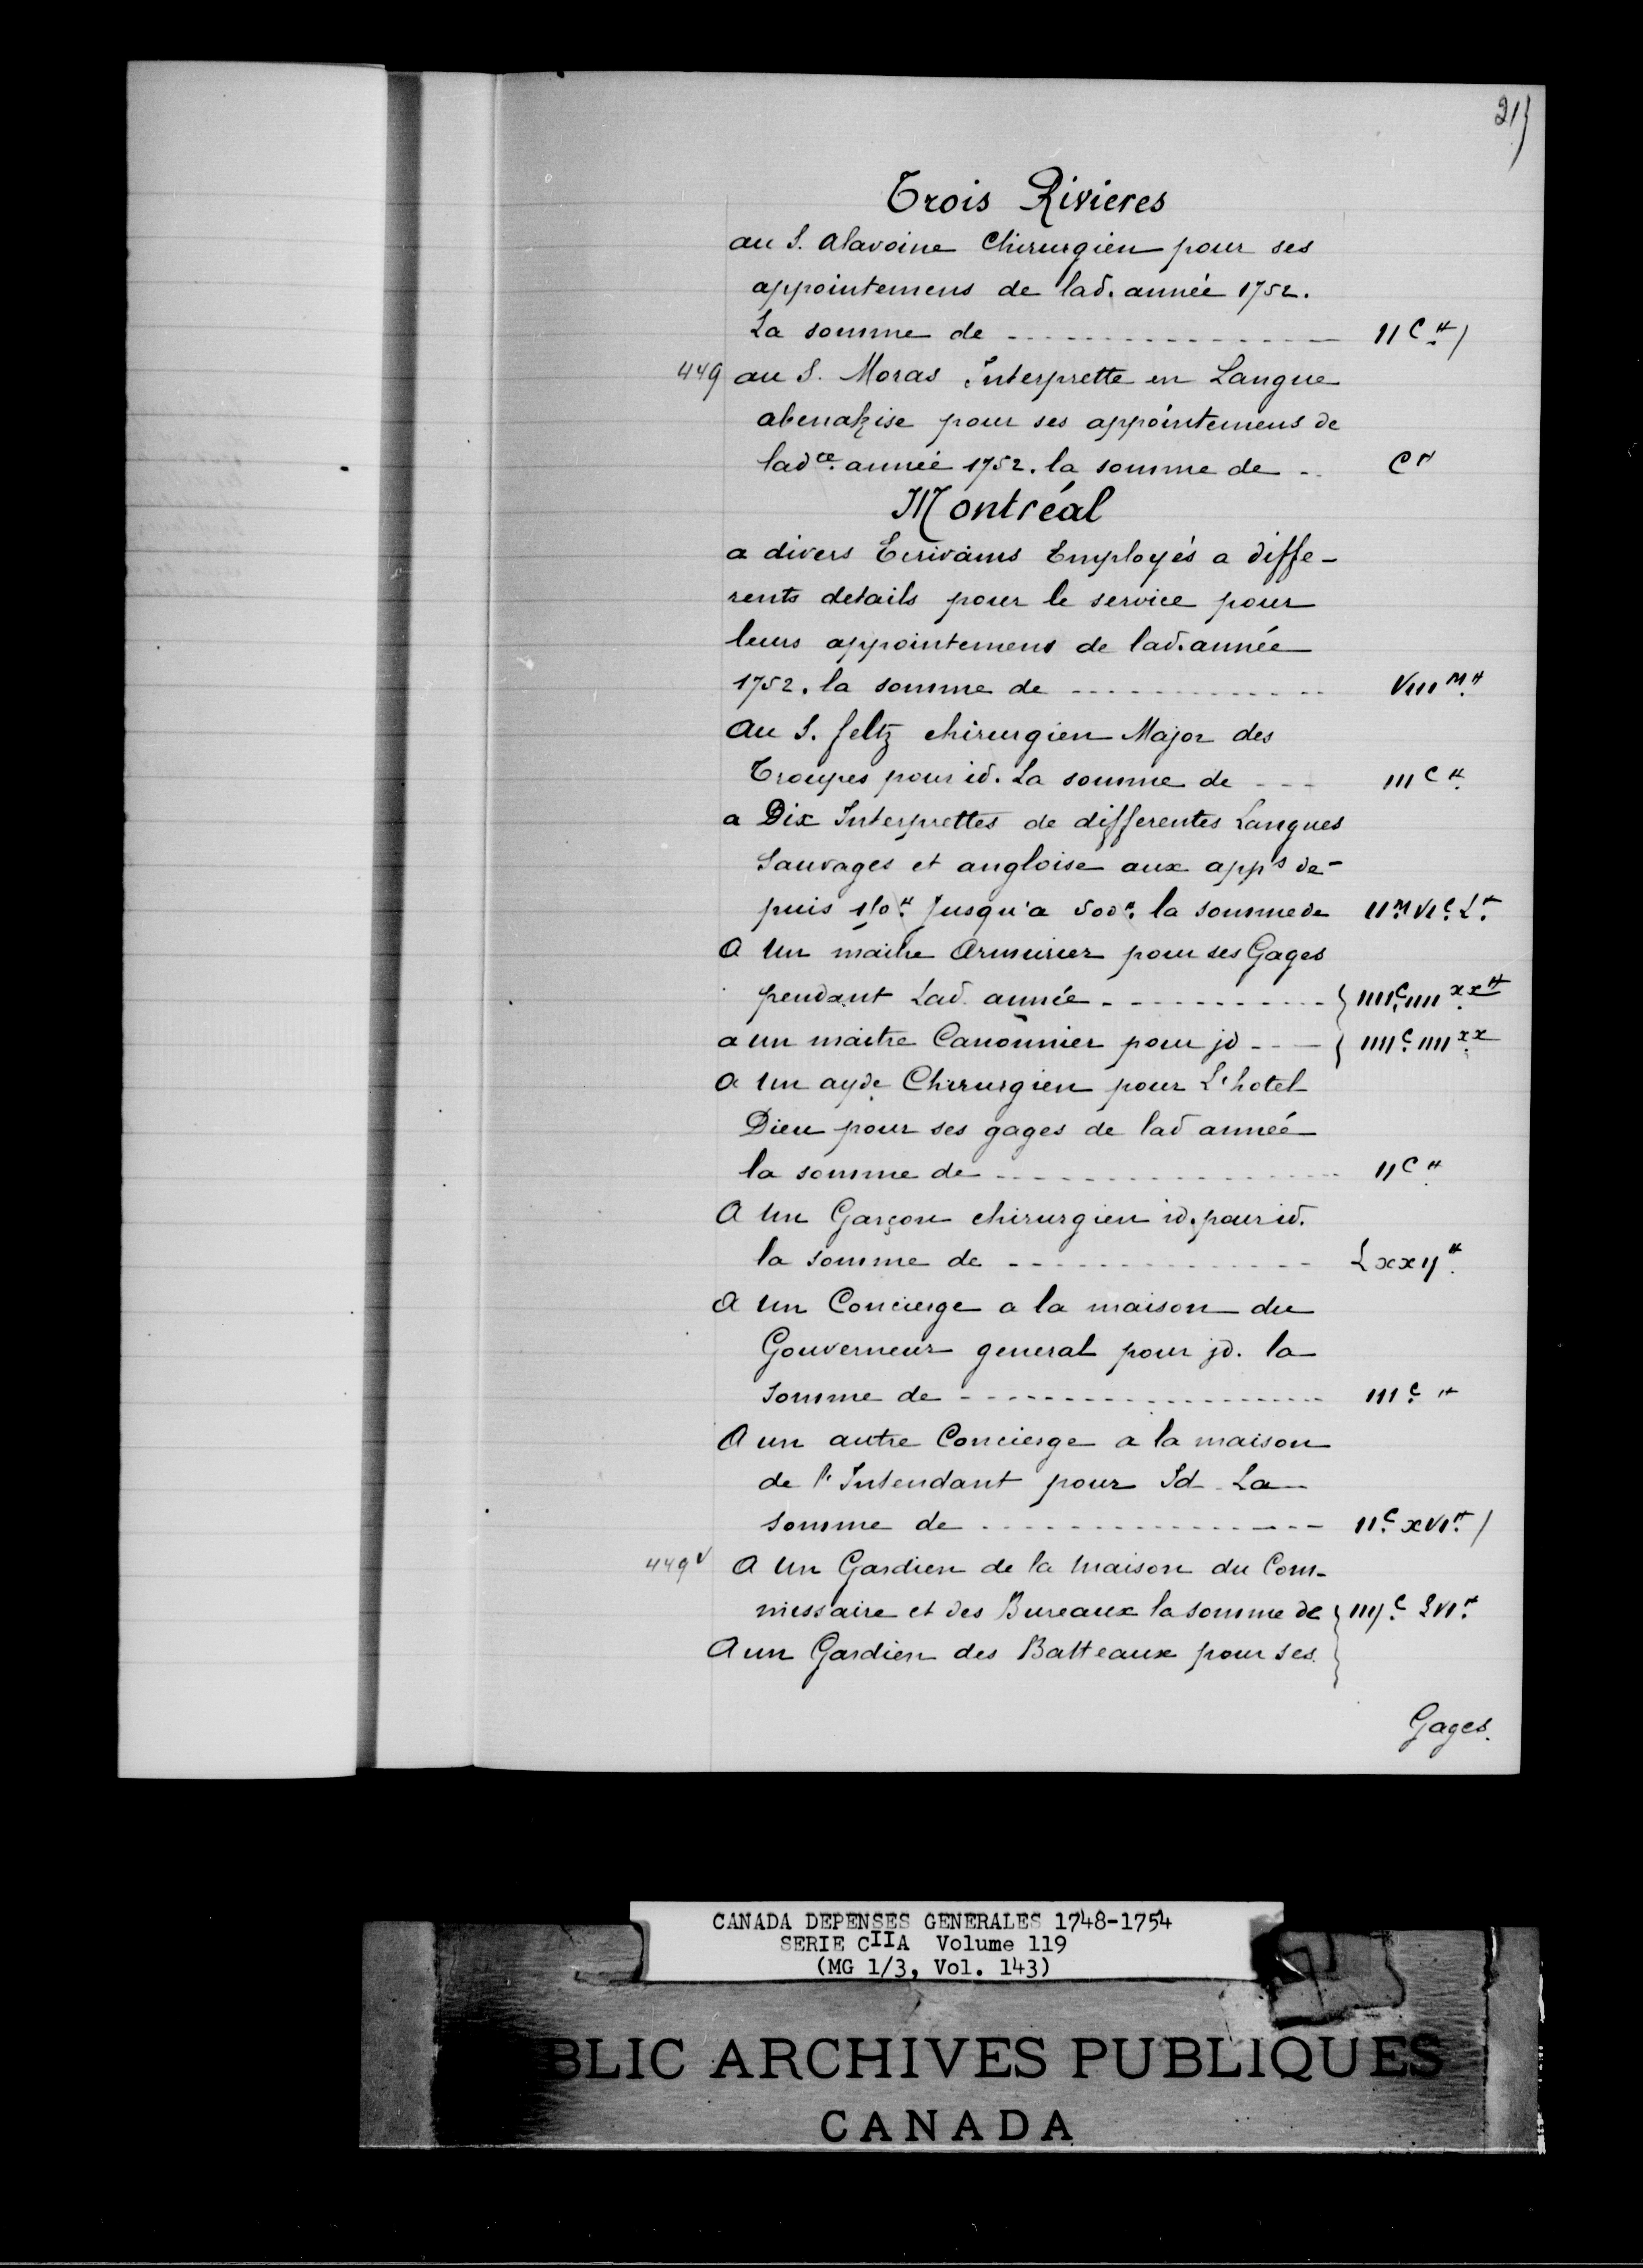 Trois Rivieres
au S. Alavoine Chirurgien pour ses
appointemens de lad. année 1752.
La somme de - - - IIC ₶ /
449 au S. Moras Interprette en Langue
abenakise pour ses appointemens de
ladce. année 1752. la somme de - - C ₶
Montréal
a divers Ecrivains Employés a diffe-
rents details pour le service pour
leurs appointemens de lad. année
1752. la somme de - - - VIII M ₶
Au S. feltz chirurgien Major des
Troupes pour id. La somme de - - - III C ₶
a Dix Interprettes de differentes Langues
Sauvages et angloise aux apps de-
puis 150 ₶ Jusqu'a 500 ₶ la somme de II M VI C L ₶
A Un maitre Armurier pour ses Gages
pendant Lad. année - - - } IIII C IIII xx ₶
a un maitre Canonnier pour jd - - - { IIII C IIII xx
A Un ayde Chirurgien pour L'hotel
Dieu pour ses gages de lad année
la somme de - - - II C ₶
A Un Garçon chirurgien id. pour id.
la somme de - - - Lxxij ₶
A Un Concierge a la maison du
Gouverneur general pour jd. la
Somme de - - - III C ₶
A un autre Concierge a la maison
de l'Intendant pour Id La
somme de - - - II C XVI ₶ /
449v A Un Gardien de la Maison du Com-
missaire et des Bureaux la somme de } IIIj C LVI ₶
A un Gardien des Batteaux pour ses
Gages.
CANADA DEPENSES GENERALES 1748-1754
SERIE CIIA Volume 119
(MG 1/3, Vol. 143)
BLIC ARCHIVES PUBLIQUES
CANADA